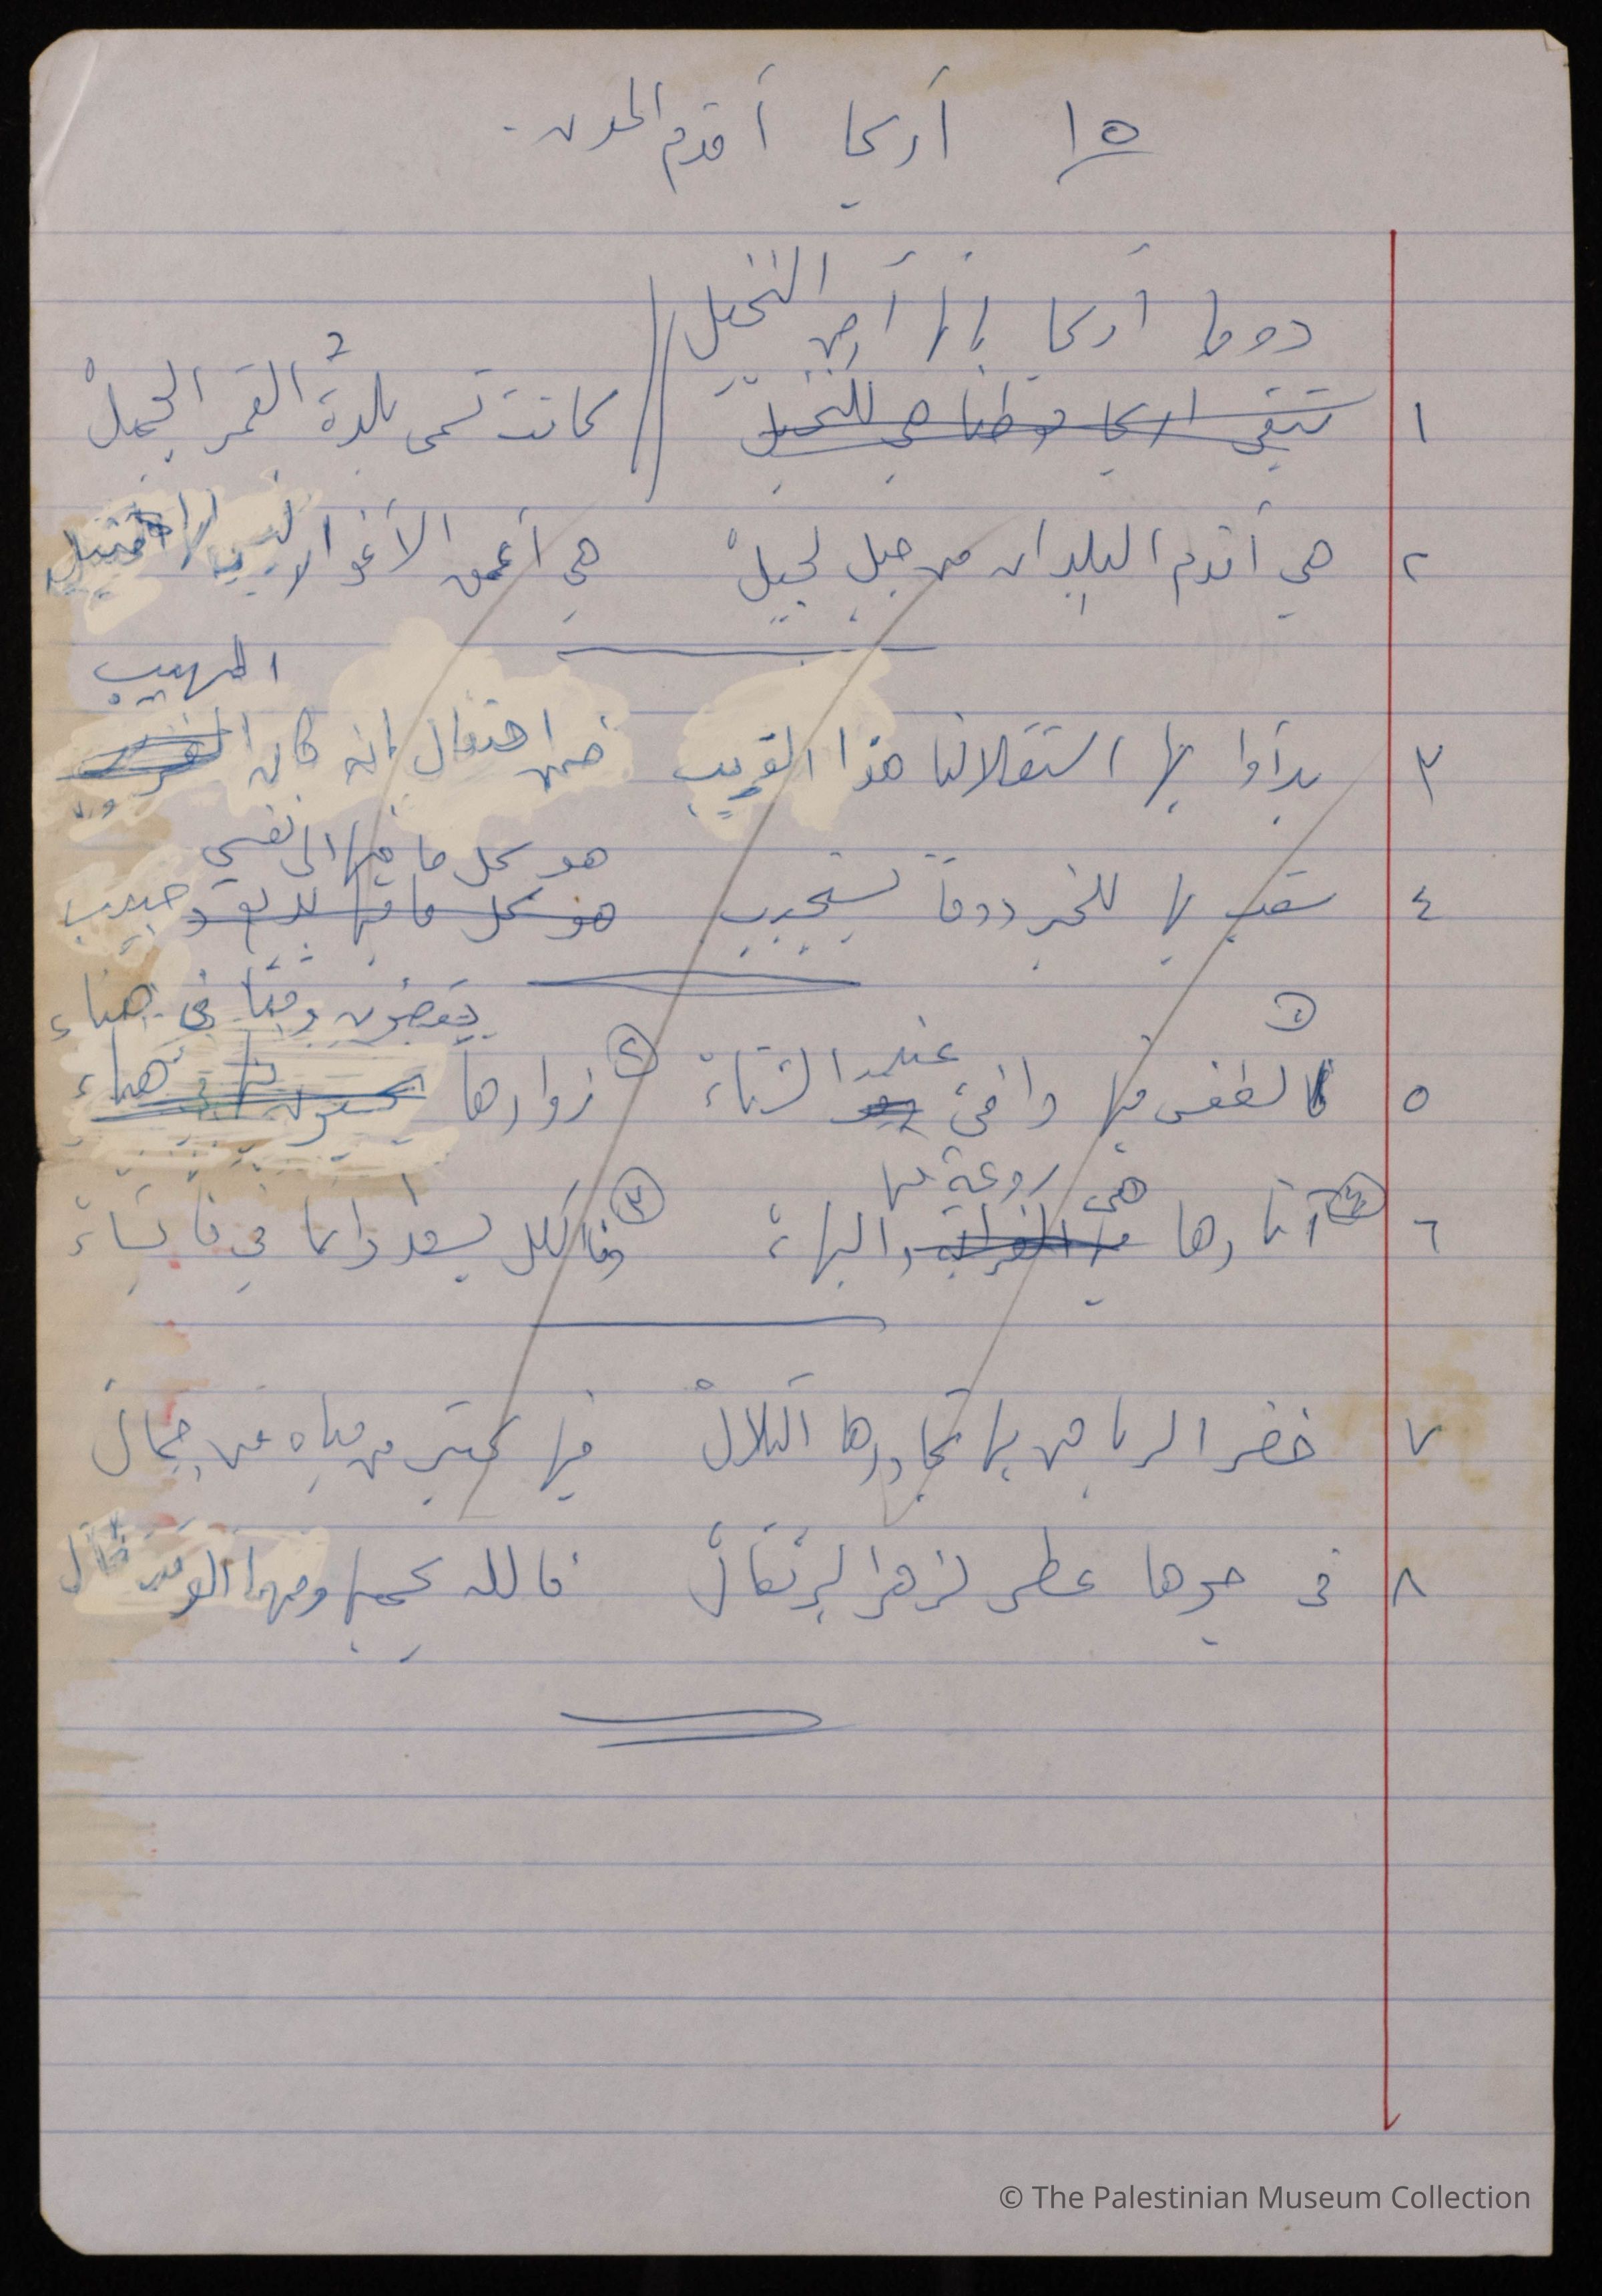 ١٥ أريحا أقدم المدن .
دوما أريحا إنها أرض النخيل
١ تبقى اريحا موطنا هي للنخيل // كانت تسمى بلدة القمر الجميلْ
٢ هي أقدم البلدان من جيل لجيلْ هي أعمق الأغوار ليس لها مثيل
المهيب
٣ بدأوا بها استقلالنا هذا القريب ضمن احتفال إنه كان
هو كل ما فيها الى نفسي
٤ شعب بها للخير دوماً يستجيب هو كل ما فيها حبيب
يقضون وقتا في هناء
٥ فالطقس فيها دافئ عند الشتاءْ زوارها
هي روعة بها
٦ آثارها والبهاءْ فالكل يسعد دائما في ما تشاءْ
٧ خضر الرياض بها تجاورها التلالْ فيها كثير من مياه من جمالْ
٨ في جوها عطر لزهر البرتقالْ فالله يحميها
© The Palestinian Museum Collection